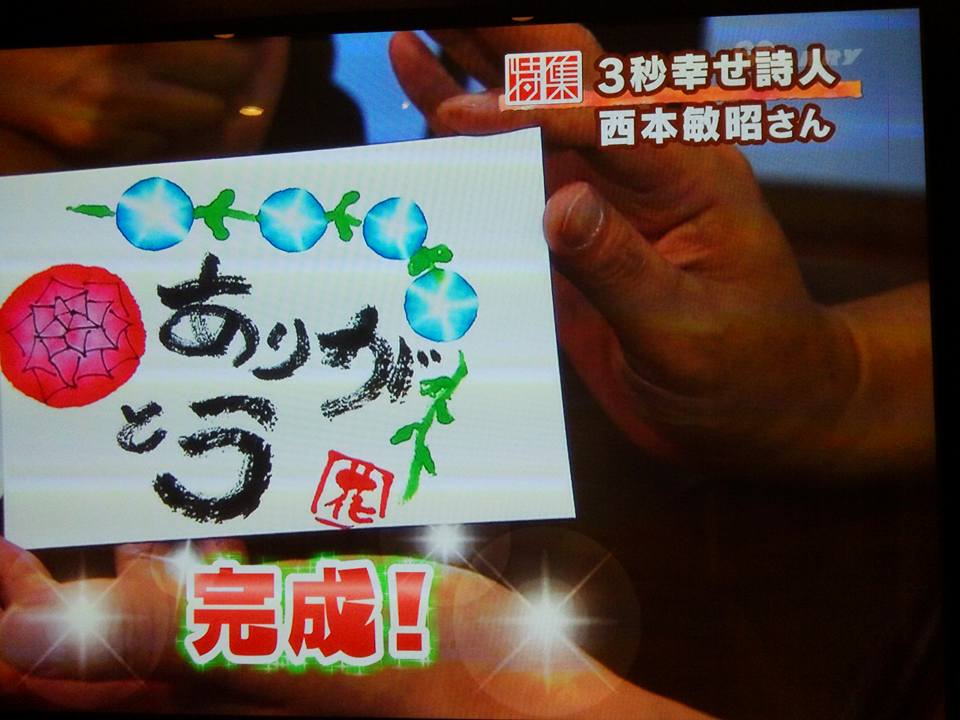 特集
3秒幸せ詩人
西本敏昭さん
ありが
とう
花
完成!